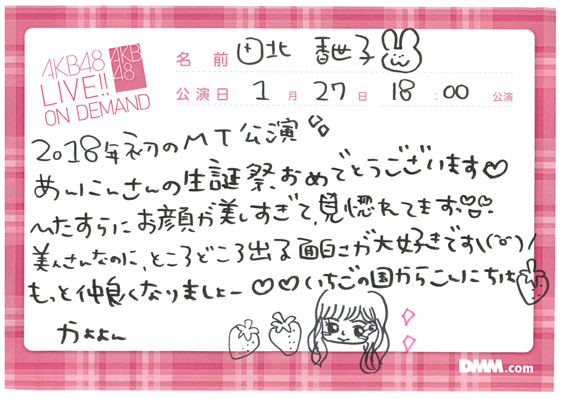 AKB48
LIVE!!
ON DEMAND
AKB
48
名前 田北 香世子
公演日 1月 27日 18:00 公演
2018年初のMT公演
めいにぃさんの生誕祭おめでとうございます♡
ひたすらにお顔が美しすぎて、見惚れてます
美人さんなのに、ところどころ出る面白さが大好きです\(^o^)/
もっと仲良くなりましょー♡♡いちごの国からこんにちは
かよよん
DMM.com